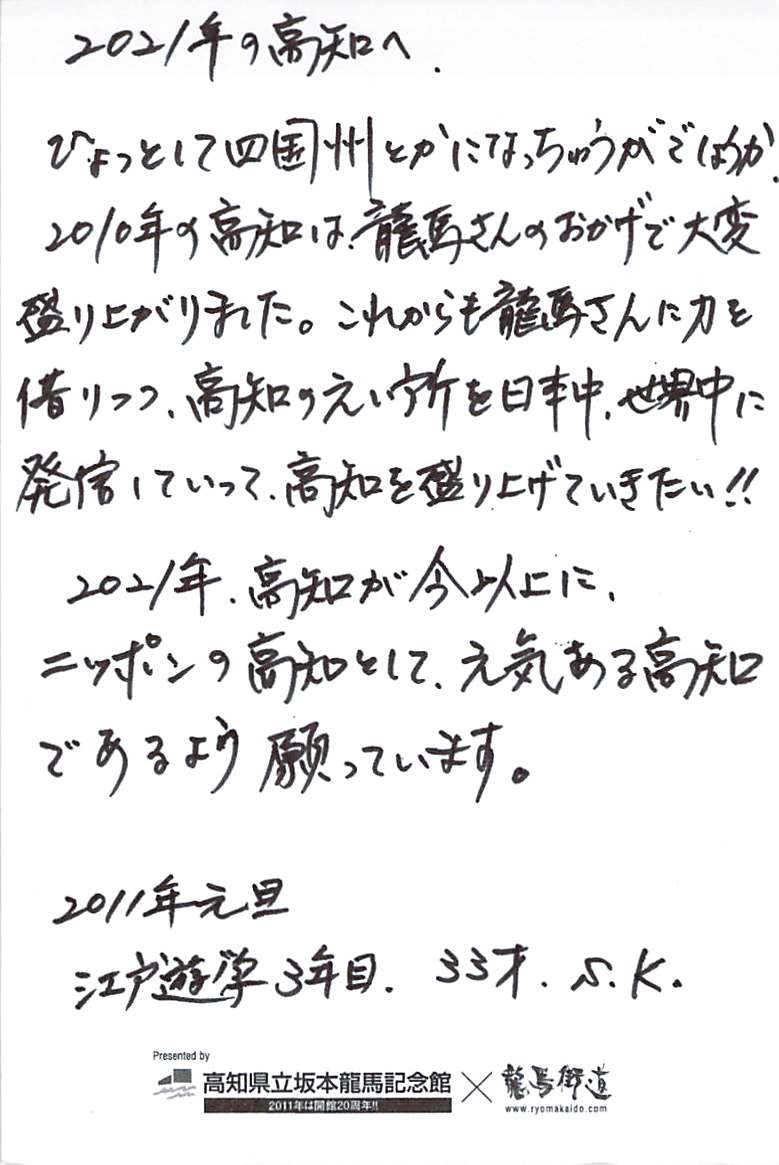 2021年の高知へ.
ひょっとして四国州とかになっちゅうがでしょうか.
2010年の高知は、龍馬さんのおかげで大変
盛り上がりました。これからも龍馬さんに力を
借りつつ、高知のえい所を日本中、世界中に
発信していって、高知を盛り上げていきたい!!
2021年、高知が今以上に、
ニッポンの高知として、元気ある高知
であるよう願っています。
2011年元旦
江戸遊学3年目. 33才. S.K.
Presented by
高知県立坂本龍馬記念館 × 龍馬街道
2011年は開館20周年!!
www.ryomakaido.com